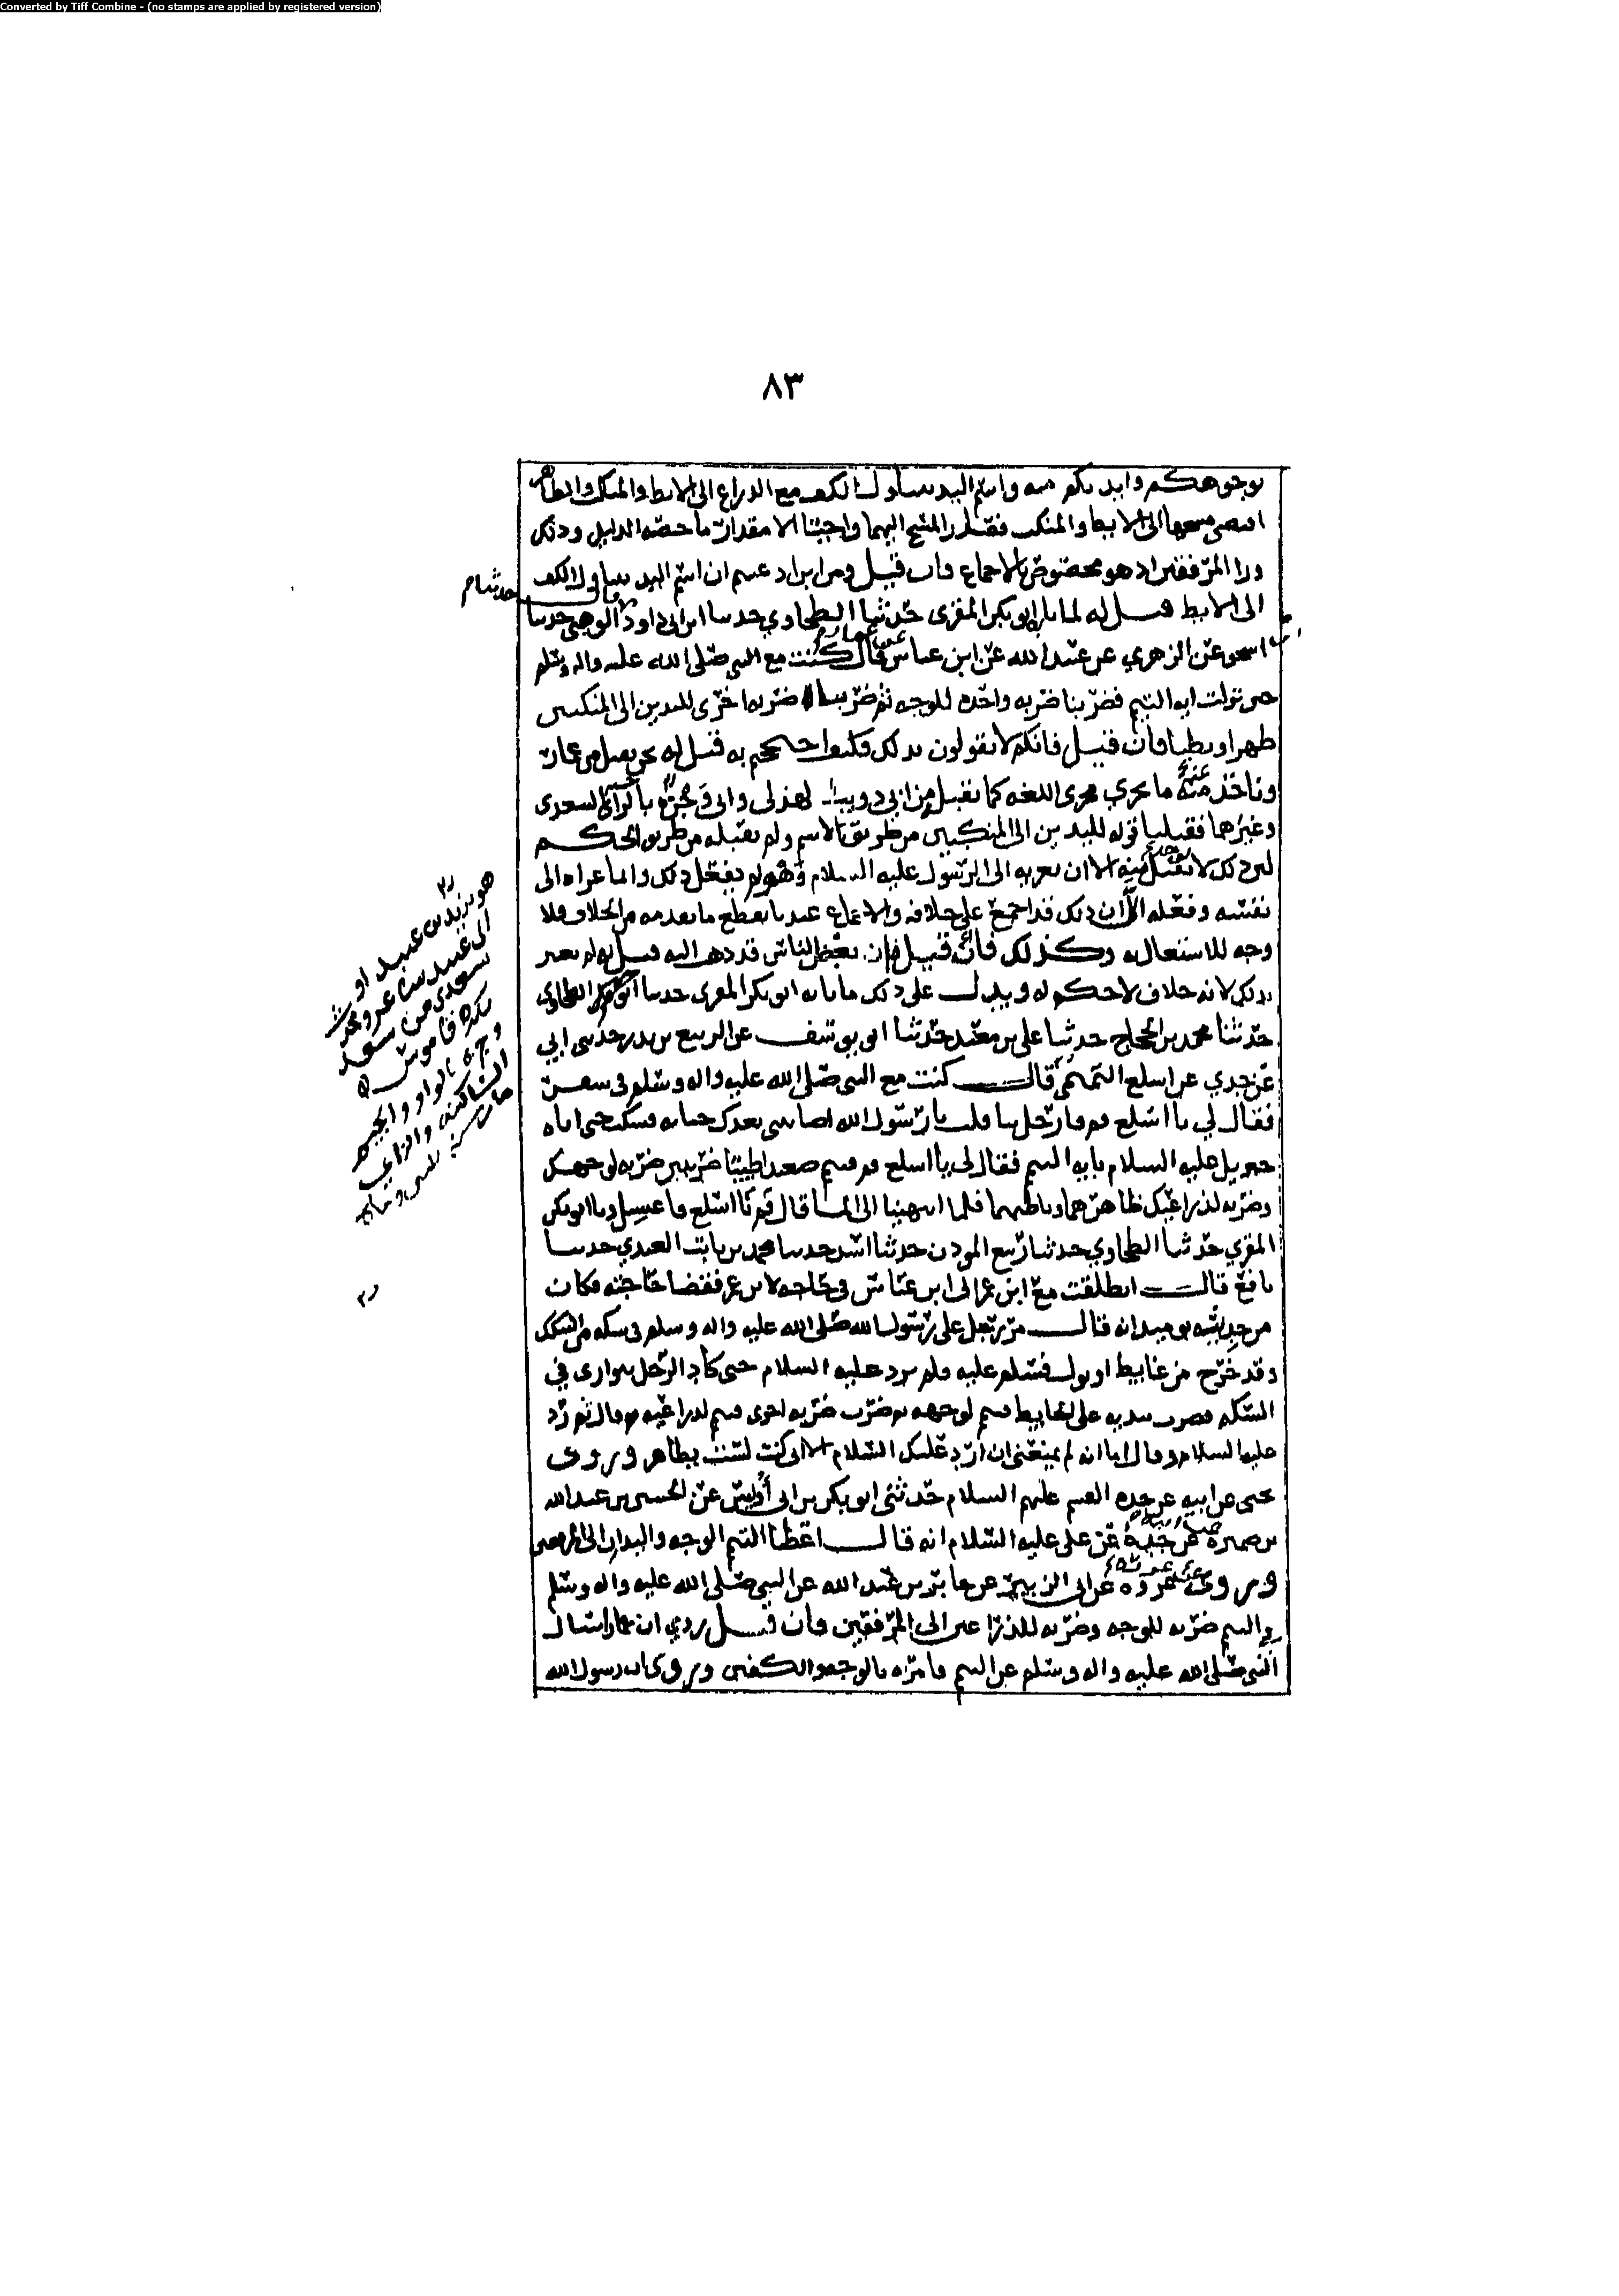 Converted by Tiff Combine - (no stamps are applied by registered version)
٨٣
بوجوهكم وايديكم منه واسم اليد يتناول الكف مع الذراع الى الابط والمنكب
اقتضى مسحها الى الابط والمنكب المسح اليهما واجبا الا مقدار ما خصه الدليل وذلك
ورا المرفقين اذ هو مخصوص بالاجماع فان قيل ومن اين ادعيتم ان اسم اليد يتناول الكف
الى الابط قيل له لما ابو بكر المقري حدثنا الطحاوي حدثنا ابن ابي داود الوهبي حدثنا
عن الزهري عن عبيد الله عن ابن عباس عن عمار قال كنت مع النبي صلى الله عليه واله وسلم
حين نزلت اية التيمم فضربنا ضربة واحدة للوجه ثم ضربنا ضربة اخرى لليدين الى المنكبين
ظهرا وبطنا فان قيل فانكم لا تقولون بذلك فكيف به قيل له نحن نقبل من عمار
وناخذ عنه ما يجري مجرى اللغة كما نقبل من ابي ذويب الهذلي وابي وجزة السعدي
وغيرهما فقبلنا قوله لليدين الى المنكبين من طريق الاسم ولم نقبله من طريق الحكم
لان ذلك لا نقبل منه الا ان يعزيه الى الرسول عليه السلام وهو لم يفعل ذلك وانما عزاه الى
نفسه وفعله الا ان ذلك قد اجمع على خلافه والاجماع عندنا يقطع ما تقدمه من الخلاف فلا
وجه للاشتغال به وكذلك فان قيل فان بعض الناس قد ذهب اليه قيل له لم نعتبر
بذلك لانه خلاف لا حكم له ويدل على ذلك ما ابو بكر المقري حدثنا ابو جعفر الطحاوي
حدثنا محمد بن الحجاج حدثنا علي بن معبد حدثنا ابو يوسف عن الربيع بن بدر حدثني ابي
عن جدي عن اسلع التميمي قال كنت مع النبي صلى الله عليه واله وسلم في سفر
فقال لي يا اسلع قم فارحل بنا قلت يا رسول الله اصابتني بعدك جنابة فسكت حتى اتاه
جبريل عليه السلام باية التيمم فقال لي يا اسلع قم فتيمم صعيدا طيبا ضربتين ضربة لوجهك
وضربة لذراعيك ظاهرهما وباطنهما فلما انتهينا الى الما قال قم يا اسلع فاغتسل ابو بكر
المقري حدثنا الطحاوي حدثنا ربيع الموذن حدثنا اسد حدثنا محمد بن ثابت العبدي حدثنا
نافع قال انطلقت مع ابن عمر الى ابن عباس في حاجة لابن عمر فقضا حاجته فكان
من حديثه يوميذ انه قال مر رجل على رسول الله صلى الله عليه واله وسلم في سكة من السكك
وقد خرج من غايط او بول فسلم عليه فلم يرد عليه السلام حتى كاد الرجل يتوارى في
السكة فضرب بيديه على الحايط فتيمم لوجهه ثم ضرب ضربة اخرى فتيمم لذراعيه قال ثم رد
عليه السلام وقال اما انه لم يمنعني ان ارد عليك السلام الا اني كنت لست بطاهر وروى
يحيى عن ابيه عن جده القسم عليهم السلام حدثني ابو بكر بن ابي أويس عن الحسين بن عبد الله
بن ضميرة عن جده عن علي عليه السلام انه قال اعضا التيمم الوجه واليدان الى المرفقين
وروى عن ابي الزبير عن جابر بن عبد الله عن النبي صلى الله عليه واله وسلم
التيمم ضربة للوجه وضربة للذراعين الى المرفقين فان قيل روي ان عمارا سال
النبي صلى الله عليه واله وسلم عن التيمم فامره بالوجه والكفين وروي ان رسول الله
هو يزيد بن عبيد او
سعدي من سعد
بكر قاموس
بالواو والجيم
الساكنة والزاي